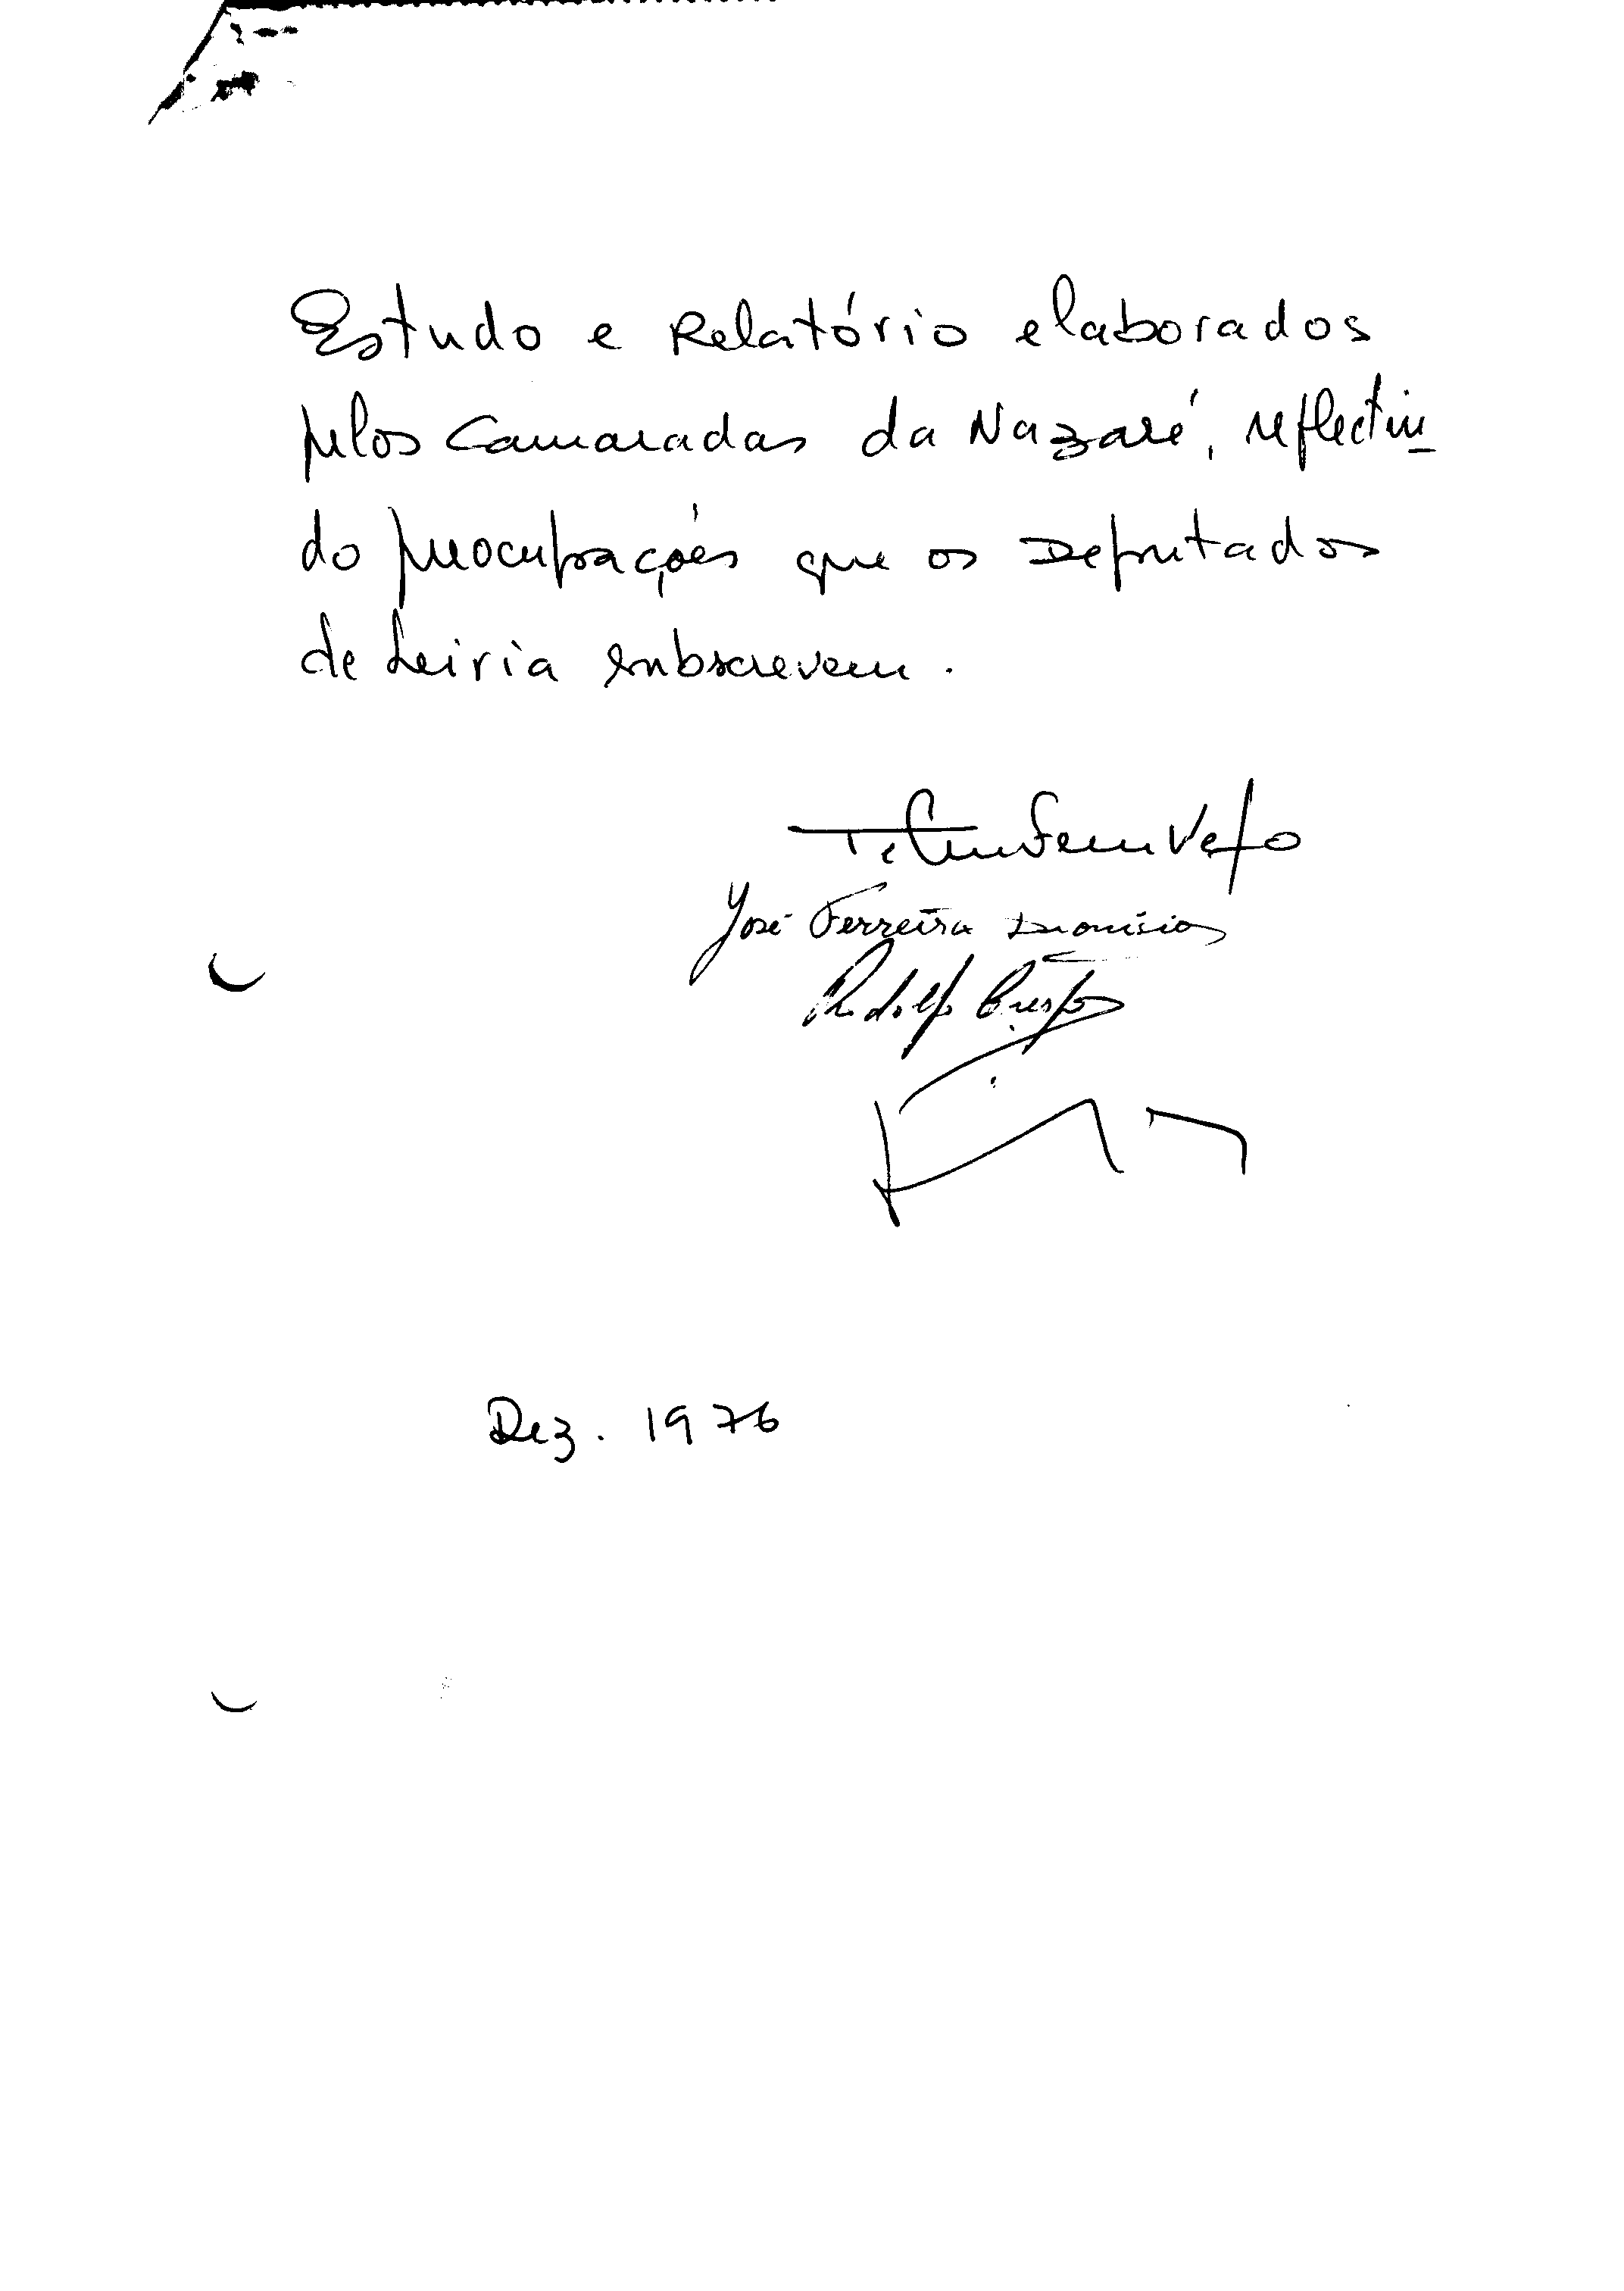 Estudo e Relatório elaborados
pelos Camaradas da Nazaré, reflectin
do preocupações que os Deputados
de Leiria subscrevem.
José Ferreira Dionísio
Rodolfo Crespo
Dez. 1976